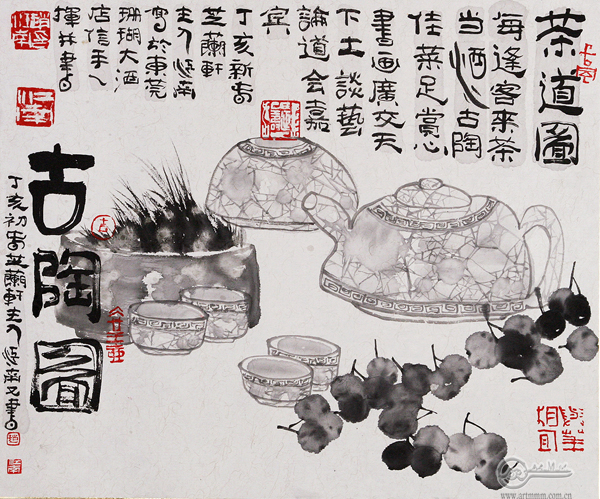 茶道圖
每逢客來茶
当酒古陶
佳菜足賞心
書画廣交天
下士談藝
論道会嘉
賓
丁亥新春
芝蘭軒
主人南
寫於東莞
珊瑚大酒
店信手
揮并書
古陶圖
丁亥初春芝蘭軒主人南又書
www.artmmm.com.cn